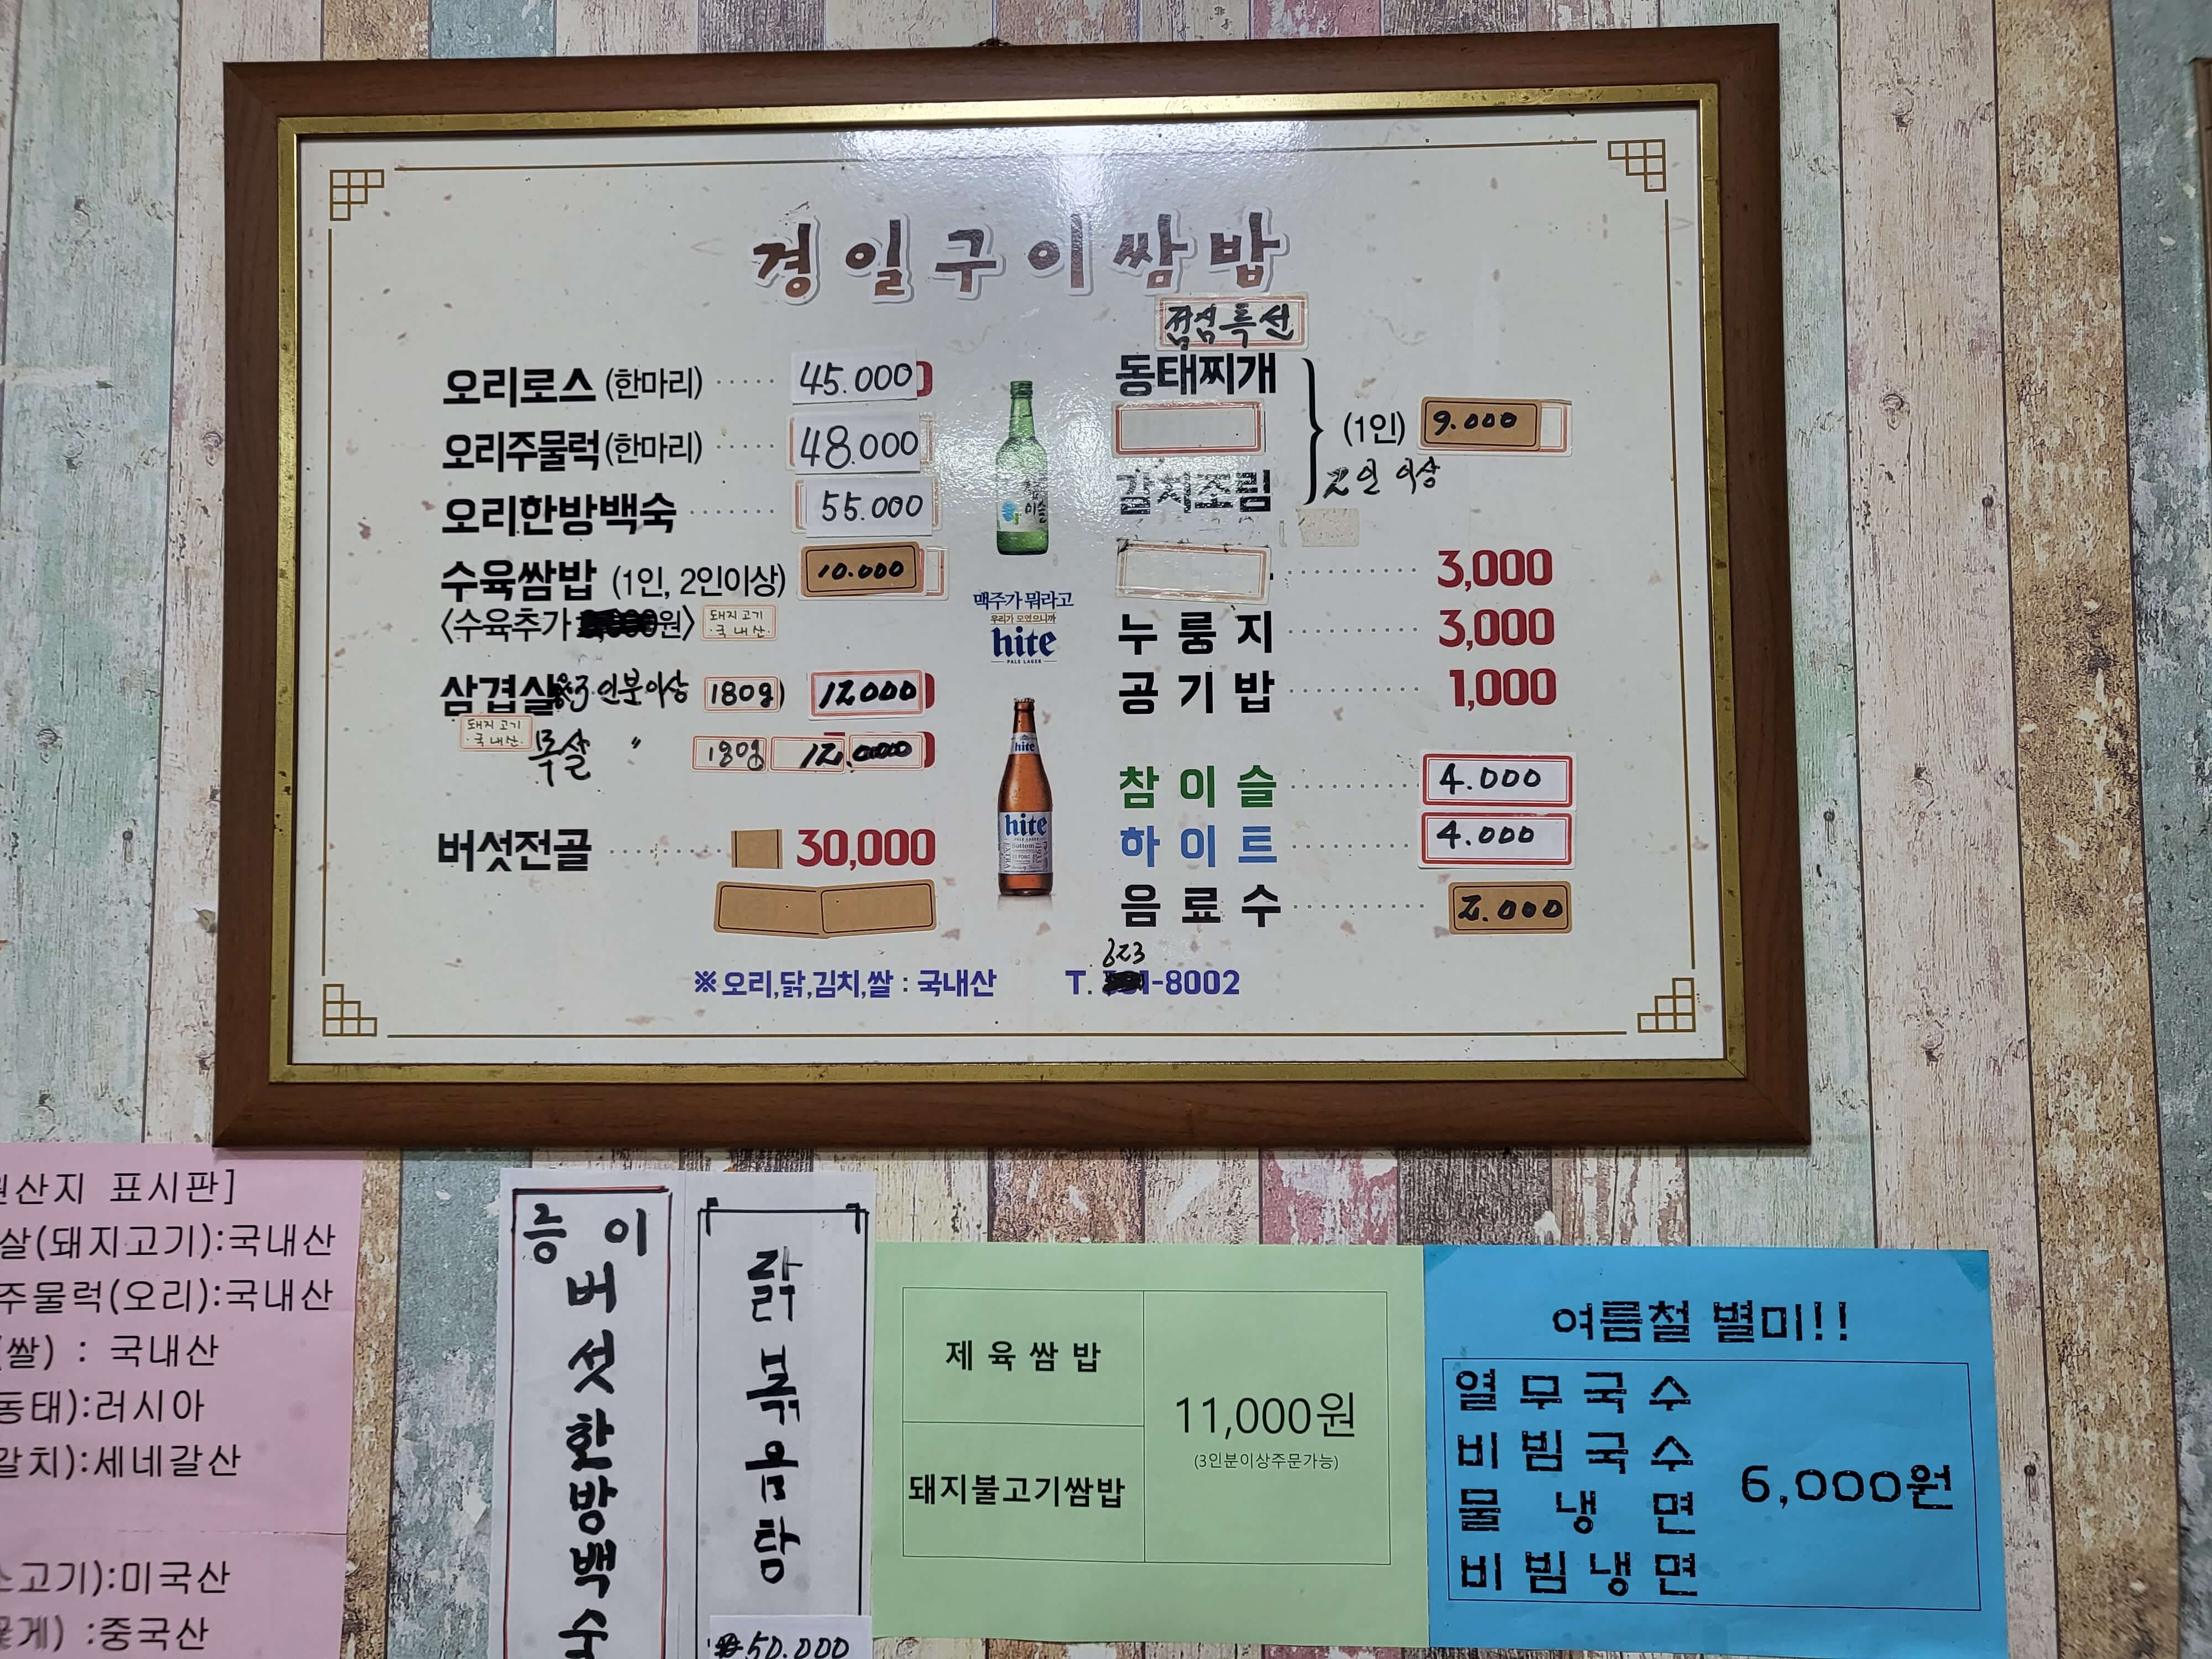 경일구이쌈밥
오리로스 (한마리) ······ 45.000
오리주물럭 (한마리) ······ 48.000
오리한방백숙 ········ 55.000
수육쌈밥 (1인, 2인이상) 10.000
<수육추가 원> 돼지고기 국내산
삼겹살 ※3인분이상 180g) 12000
돼지고기 국내산
목살 〃 180g 12.000
버섯전골 ········ 30,000
점심특선
동태찌개
갈치조림
(1인) 9.000
2인 이상
········ 3,000
누룽지 ········ 3,000
공기밥 ········ 1,000
참이슬 ········ 4.000
하이트 ········ 4.000
음료수 ········ 2.000
이슬
맥주가 뭐라고
우리가 모였으니까
hite
PALE LAGER
hite
hite
※오리,닭,김치,쌀 : 국내산
T. 623-8002
원산지 표시판]
살(돼지고기):국내산
주물럭(오리):국내산
(쌀) : 국내산
동태):러시아
갈치):세네갈산
소고기):미국산
꽃게) :중국산
능이
버섯한방백숙
닭볶음탕
₩50.000
제육쌈밥
돼지불고기쌈밥
11,000원
(3인분이상주문가능)
여름철 별미!!
열무국수
비빔국수
물냉면
비빔냉면
6,000원